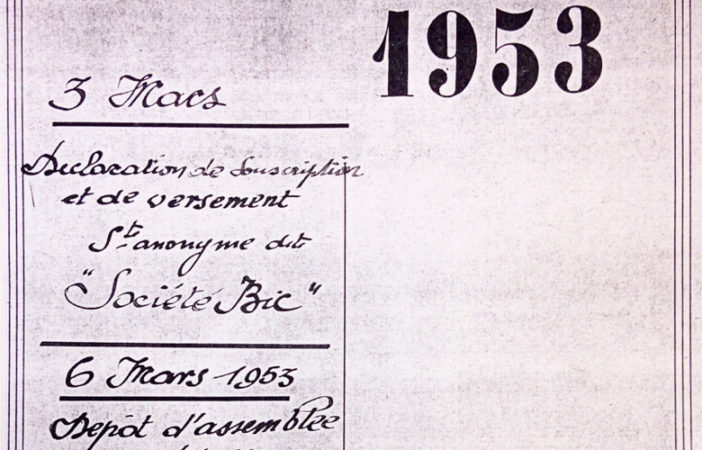 1953
3 Mars
Déclaration de Souscription
et de versement
Sté anonyme dite
"Société Bic"
6 Mars 1953
Dépôt d'assemblée